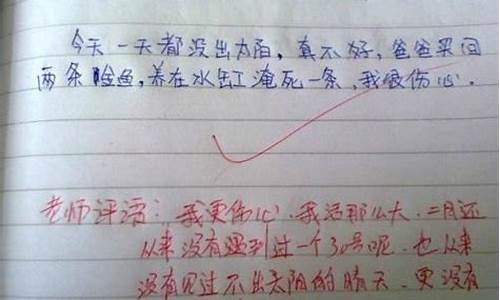 今天一天都没出太阳，真不好，爸爸买回
两条鱼，养在水缸淹死一条，我很伤心。
老师评语：我更伤心，我活那么大，二月还
从来没有遇到过一个30号呢，也从来
没有见过不出太阳的晴天，更没有